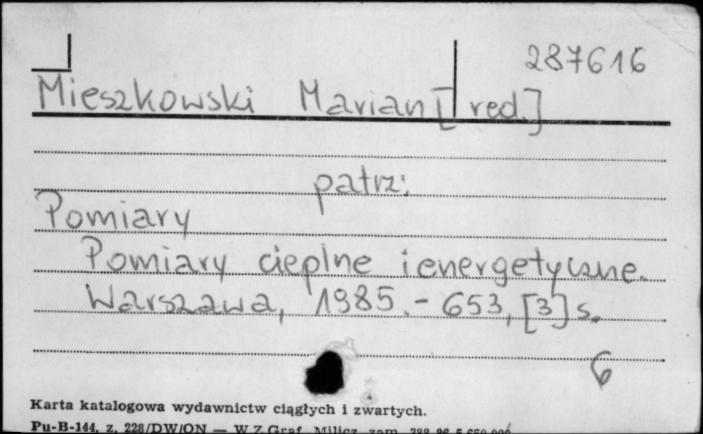 287616
Mieszkowski Marian [red.]
patrz:
Pomiary
Pomiary cieplne i energetyczne.
Warszawa, 1985. - 653, [3] s.
6
Karta katalogowa wydawnictw ciągłych i zwartych.
Pu-B-144, z. 228/DW/ON — W.Z.Graf. Milicz, zam.